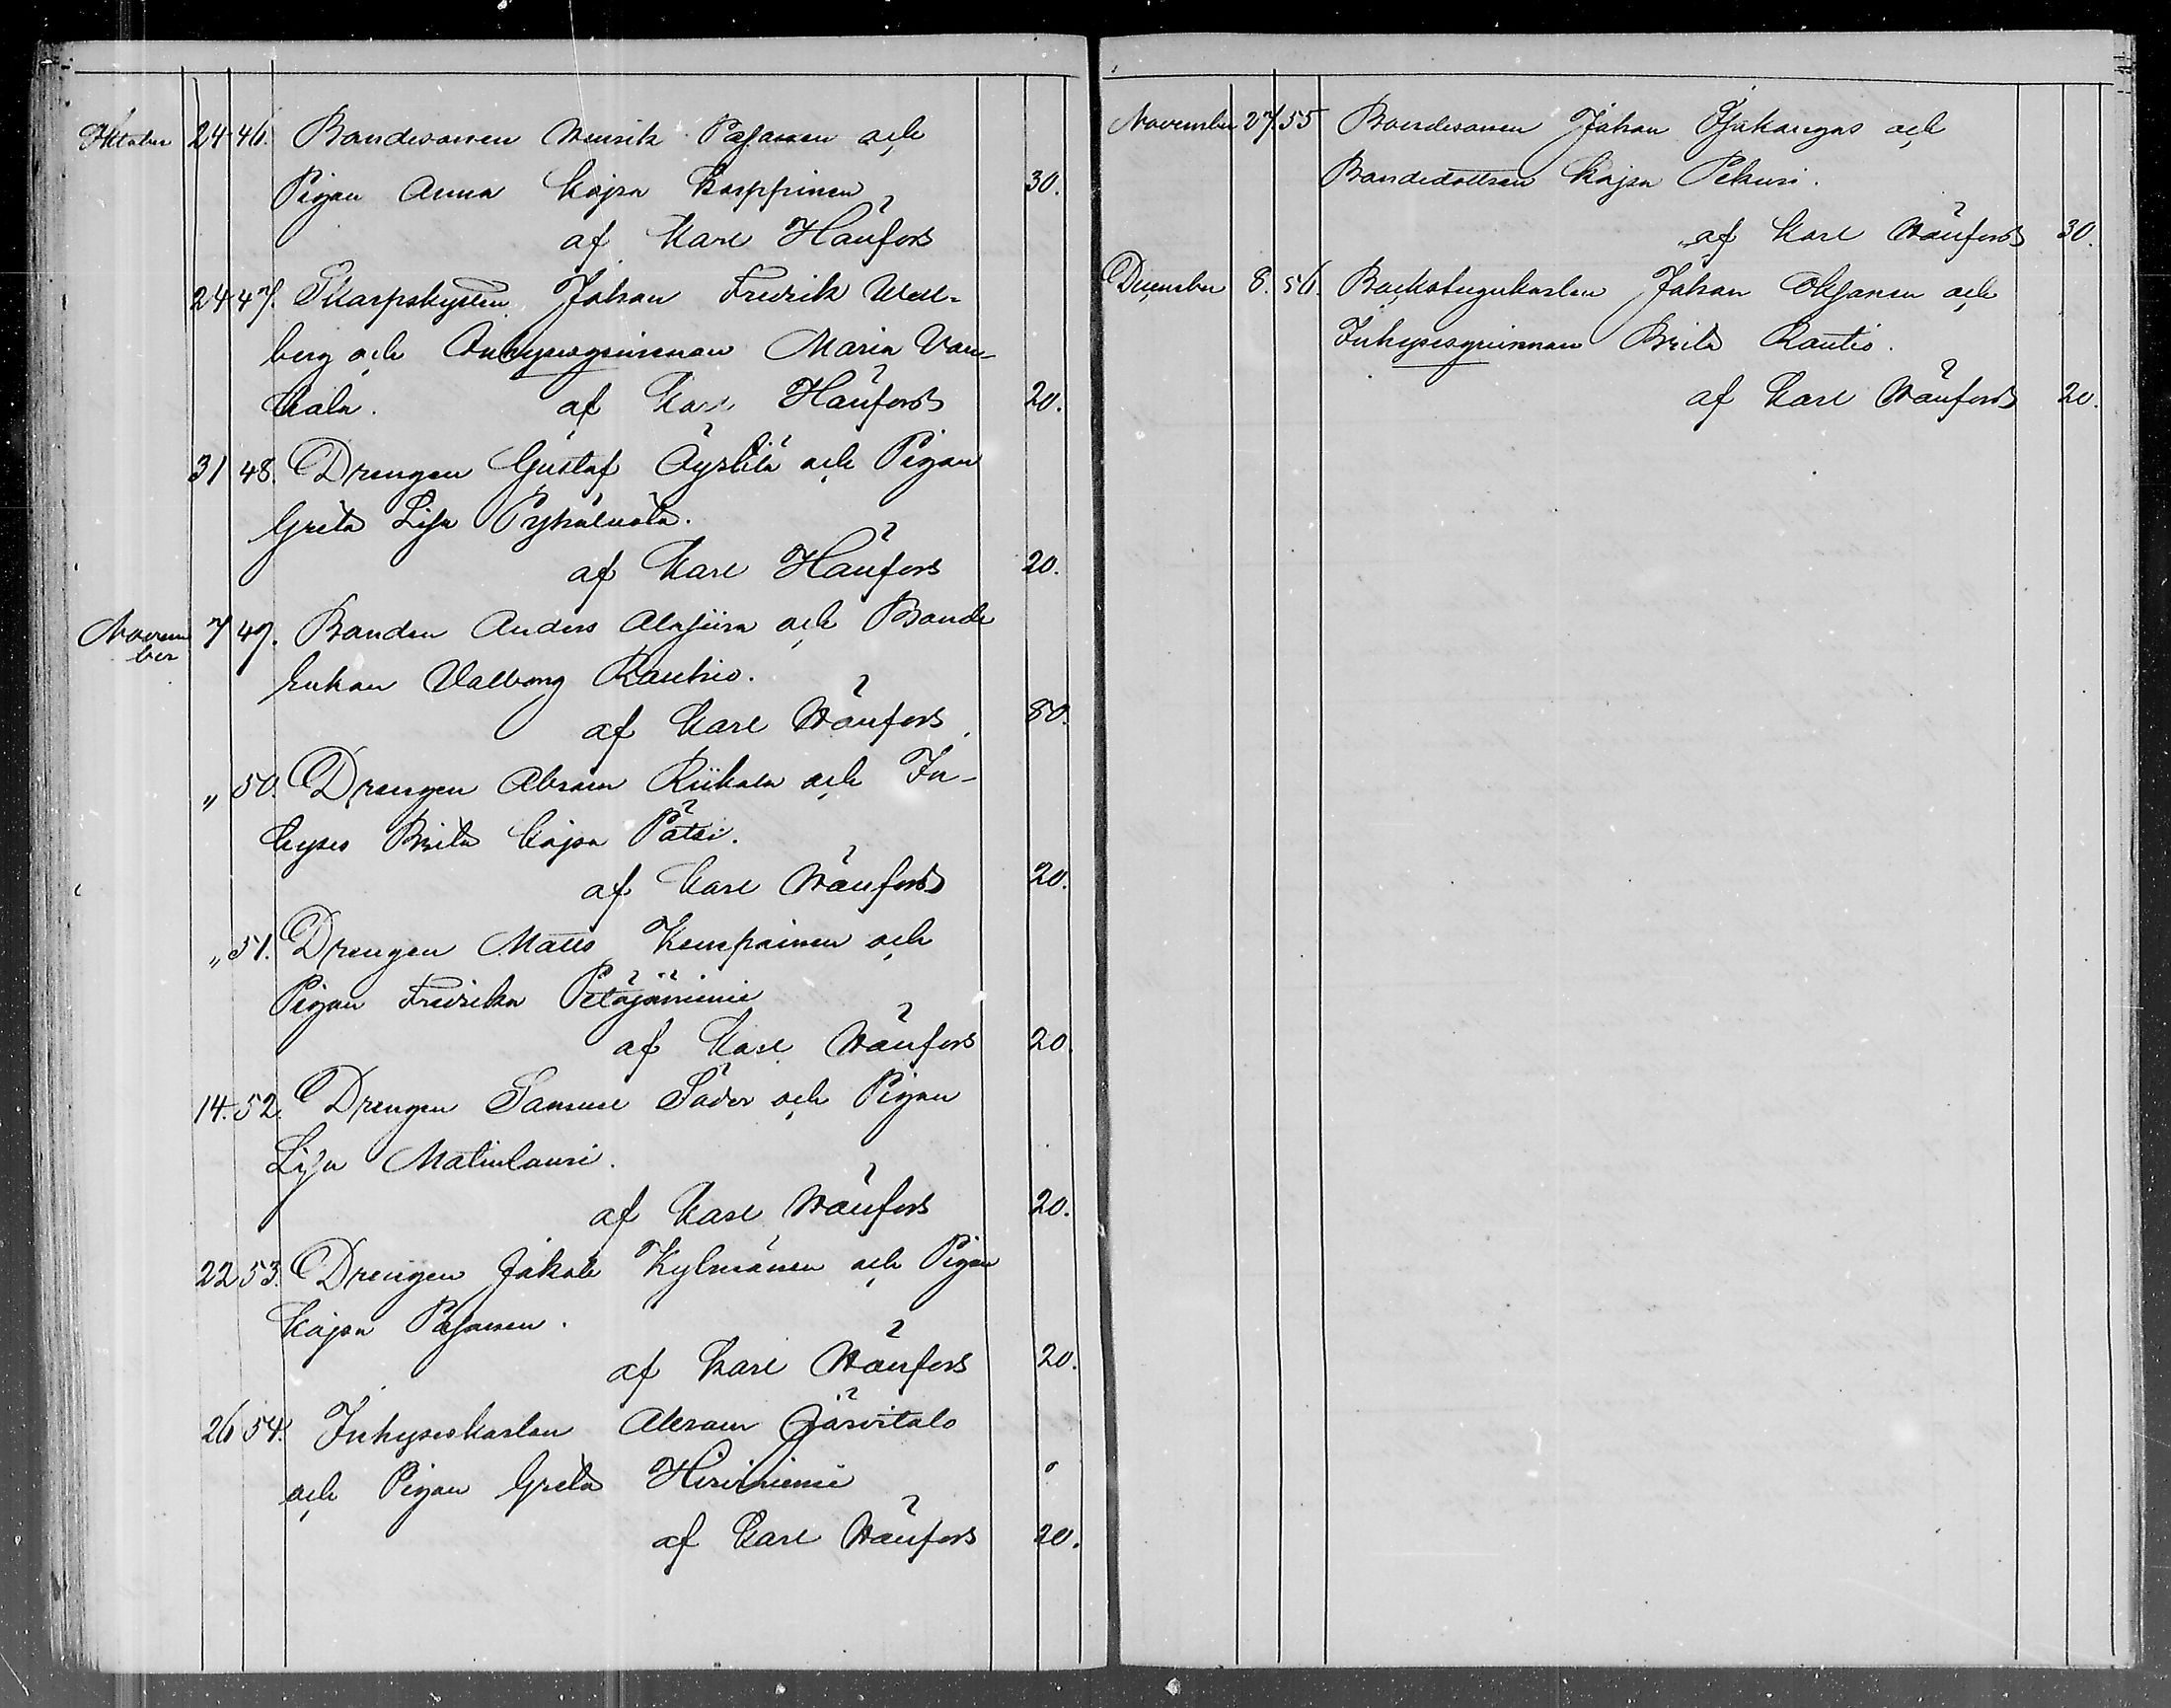 Oktober 24 46. Bondesonen Henrik Pajanen och
Pigan Anna Kajsa Karppinen 30.
af Karl Hänfors
24 47. Skarpskytten Johan Fredrik Well-
berg och Inhysesqvinnan Maria Van-
hala. af Karl Hänfors 20.
31 48. Drengen Gustaf Äystilä och Pigan
Greta Lisa Pyhäluoto.
af Karl Hänfors 20.
Novem
ber 7 49. Bonden Anders Alajiira och Bonde
Enkan Valborg Rautio.
af Karl Hänfors 80.
„ 50. Drengen Abram Riikola och In-
hyses Brita Kajsa Pätsi.
af Karl Hänfors 20.
„ 51. Drengen Matts Kemppainen och
Pigan Fredrika Petäjäniemi
af Karl Hänfors 20.
14. 52. Drengen Samuel Söder och Pigan
Lisa Matinlauri.
af Karl Hänfors 20.
22 53. Drengen Jakob Kylmänen och Pigan
Kajsa Pajanen.
af Karl Hänfors 20.
26 54. Inhyseskarlen Abram Järvitalo
och Pigan Greta Hirviniemi
af Karl Hänfors 20.
November 27. 55 Bondesonen Johan och
Bondedottren Kajsa Pekuri.
af Karl Hänfors 30.
December 8. 56. Backstugukarlen Johan Oksanen och
Inhysesqvinnan Brita Rautio.
af Karl Hänfors 20.